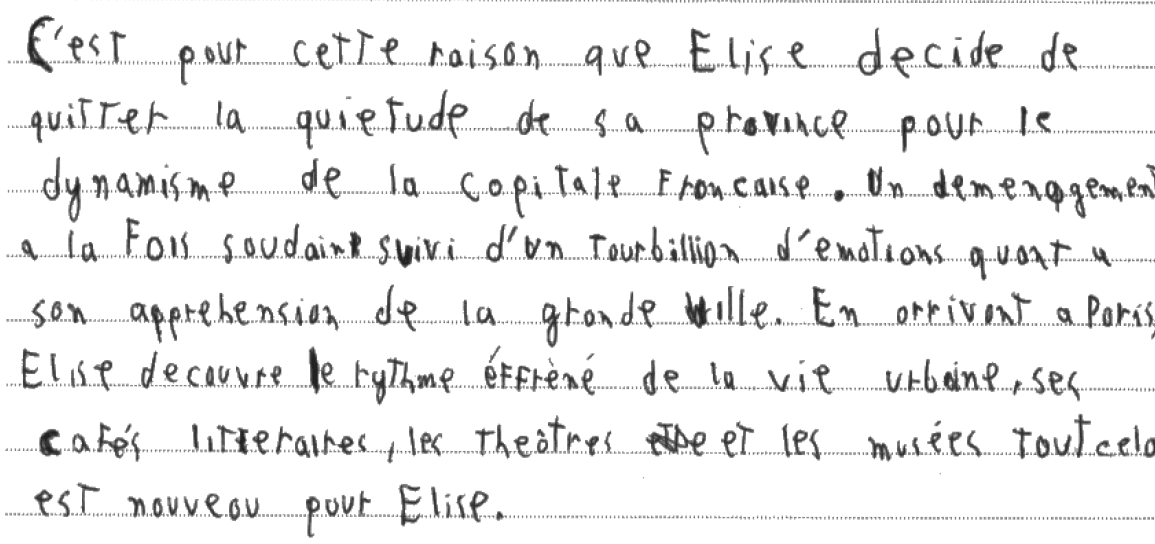 C'est pour cette raison que Elise decide de
quitter la quietude de sa province pour le
dynamisme de la capitale Francaise. Un demenagement
a la Fois soudain suivi d'un tourbillion d'emotions quant a
son apprehension de la grande ville. En arrivant a Paris,
Elise decouvre le rythme éffrèné de la vie urbaine, ses
cafés litteraires, les theâtres et les musées tout cela
est nouveau pour Elise.